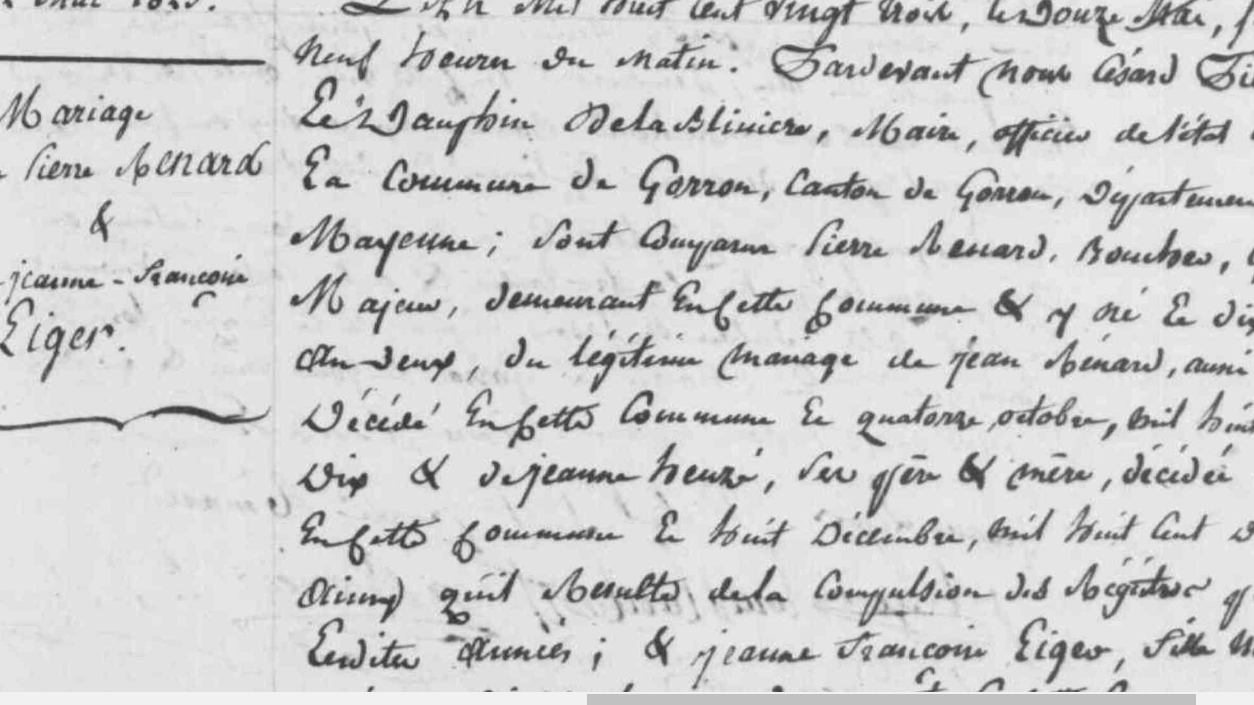 Mariage
Pierre Renard
&
jeanne-Françoise
Liger.
L'An mil huit cent vingt trois, le Douze Mai,
neuf heures du matin. Pardevant nous Césard
Le Dauphin De la Blinière, Maire, officier de l'état
La Commune de Gorron, Canton de Gorron, Département
Mayenne; sont Comparus Pierre Renard, Boucher,
Majeur, demeurant En Cette Commune & y né Le
An-deux, du légitime mariage de jean Rénard, aussi
Décédé En Cette Commune Le quatorze octobre, mil huit
Dix & de jeanne heuzé, ses père & mère, décédée
En Cette Commune Le huit Décembre, mil huit Cent
Ainsi qu'il Resulte de la Compulsion des Régistres
Années; & jeanne Françoise Liger, fille